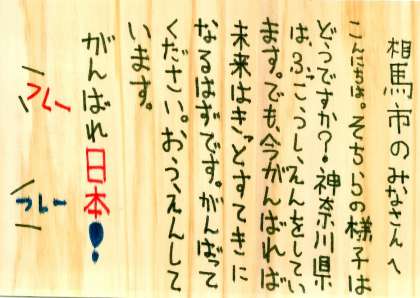 相馬市のみなさんへ
こんにちは。そちらの様子は
どうですか？神奈川県
は、ふっこうし、えんをしてい
ます。でも、今がんばれば
未来はきっとすてきに
なるはずです。がんばって
ください。おう、えんして
います。
がんばれ日本！
フレー
フレー